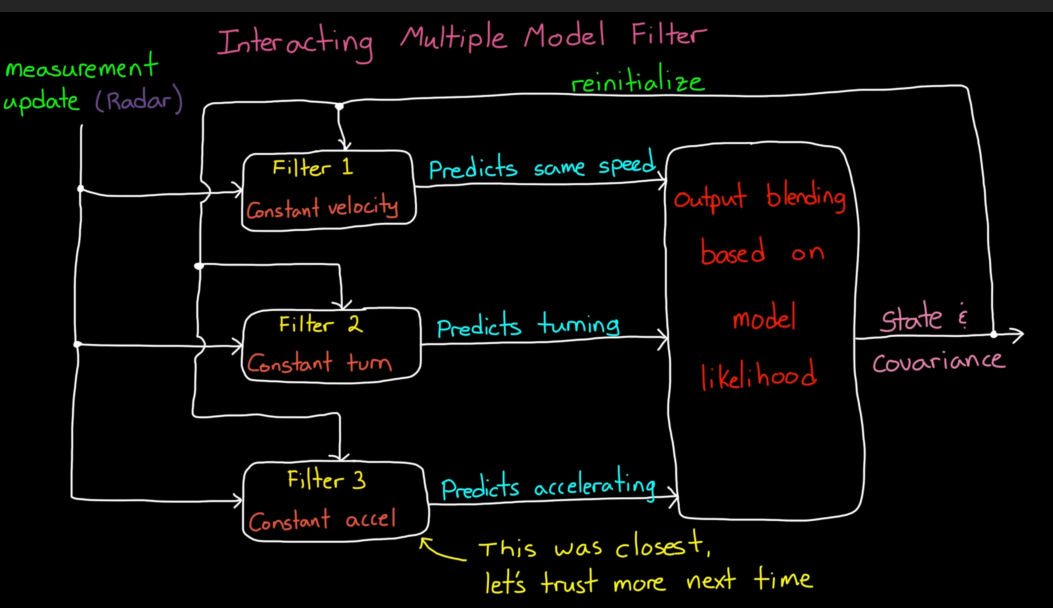 Interacting Multiple Model Filter
measurement
update (Radar)
reinitialize
Filter 1
Constant velocity
Predicts same speed
Filter 2
Constant turn
Predicts turning
Filter 3
Constant accel
Predicts accelerating
output blending
based on
model
likelihood
State &
Covariance
This was closest,
let's trust more next time